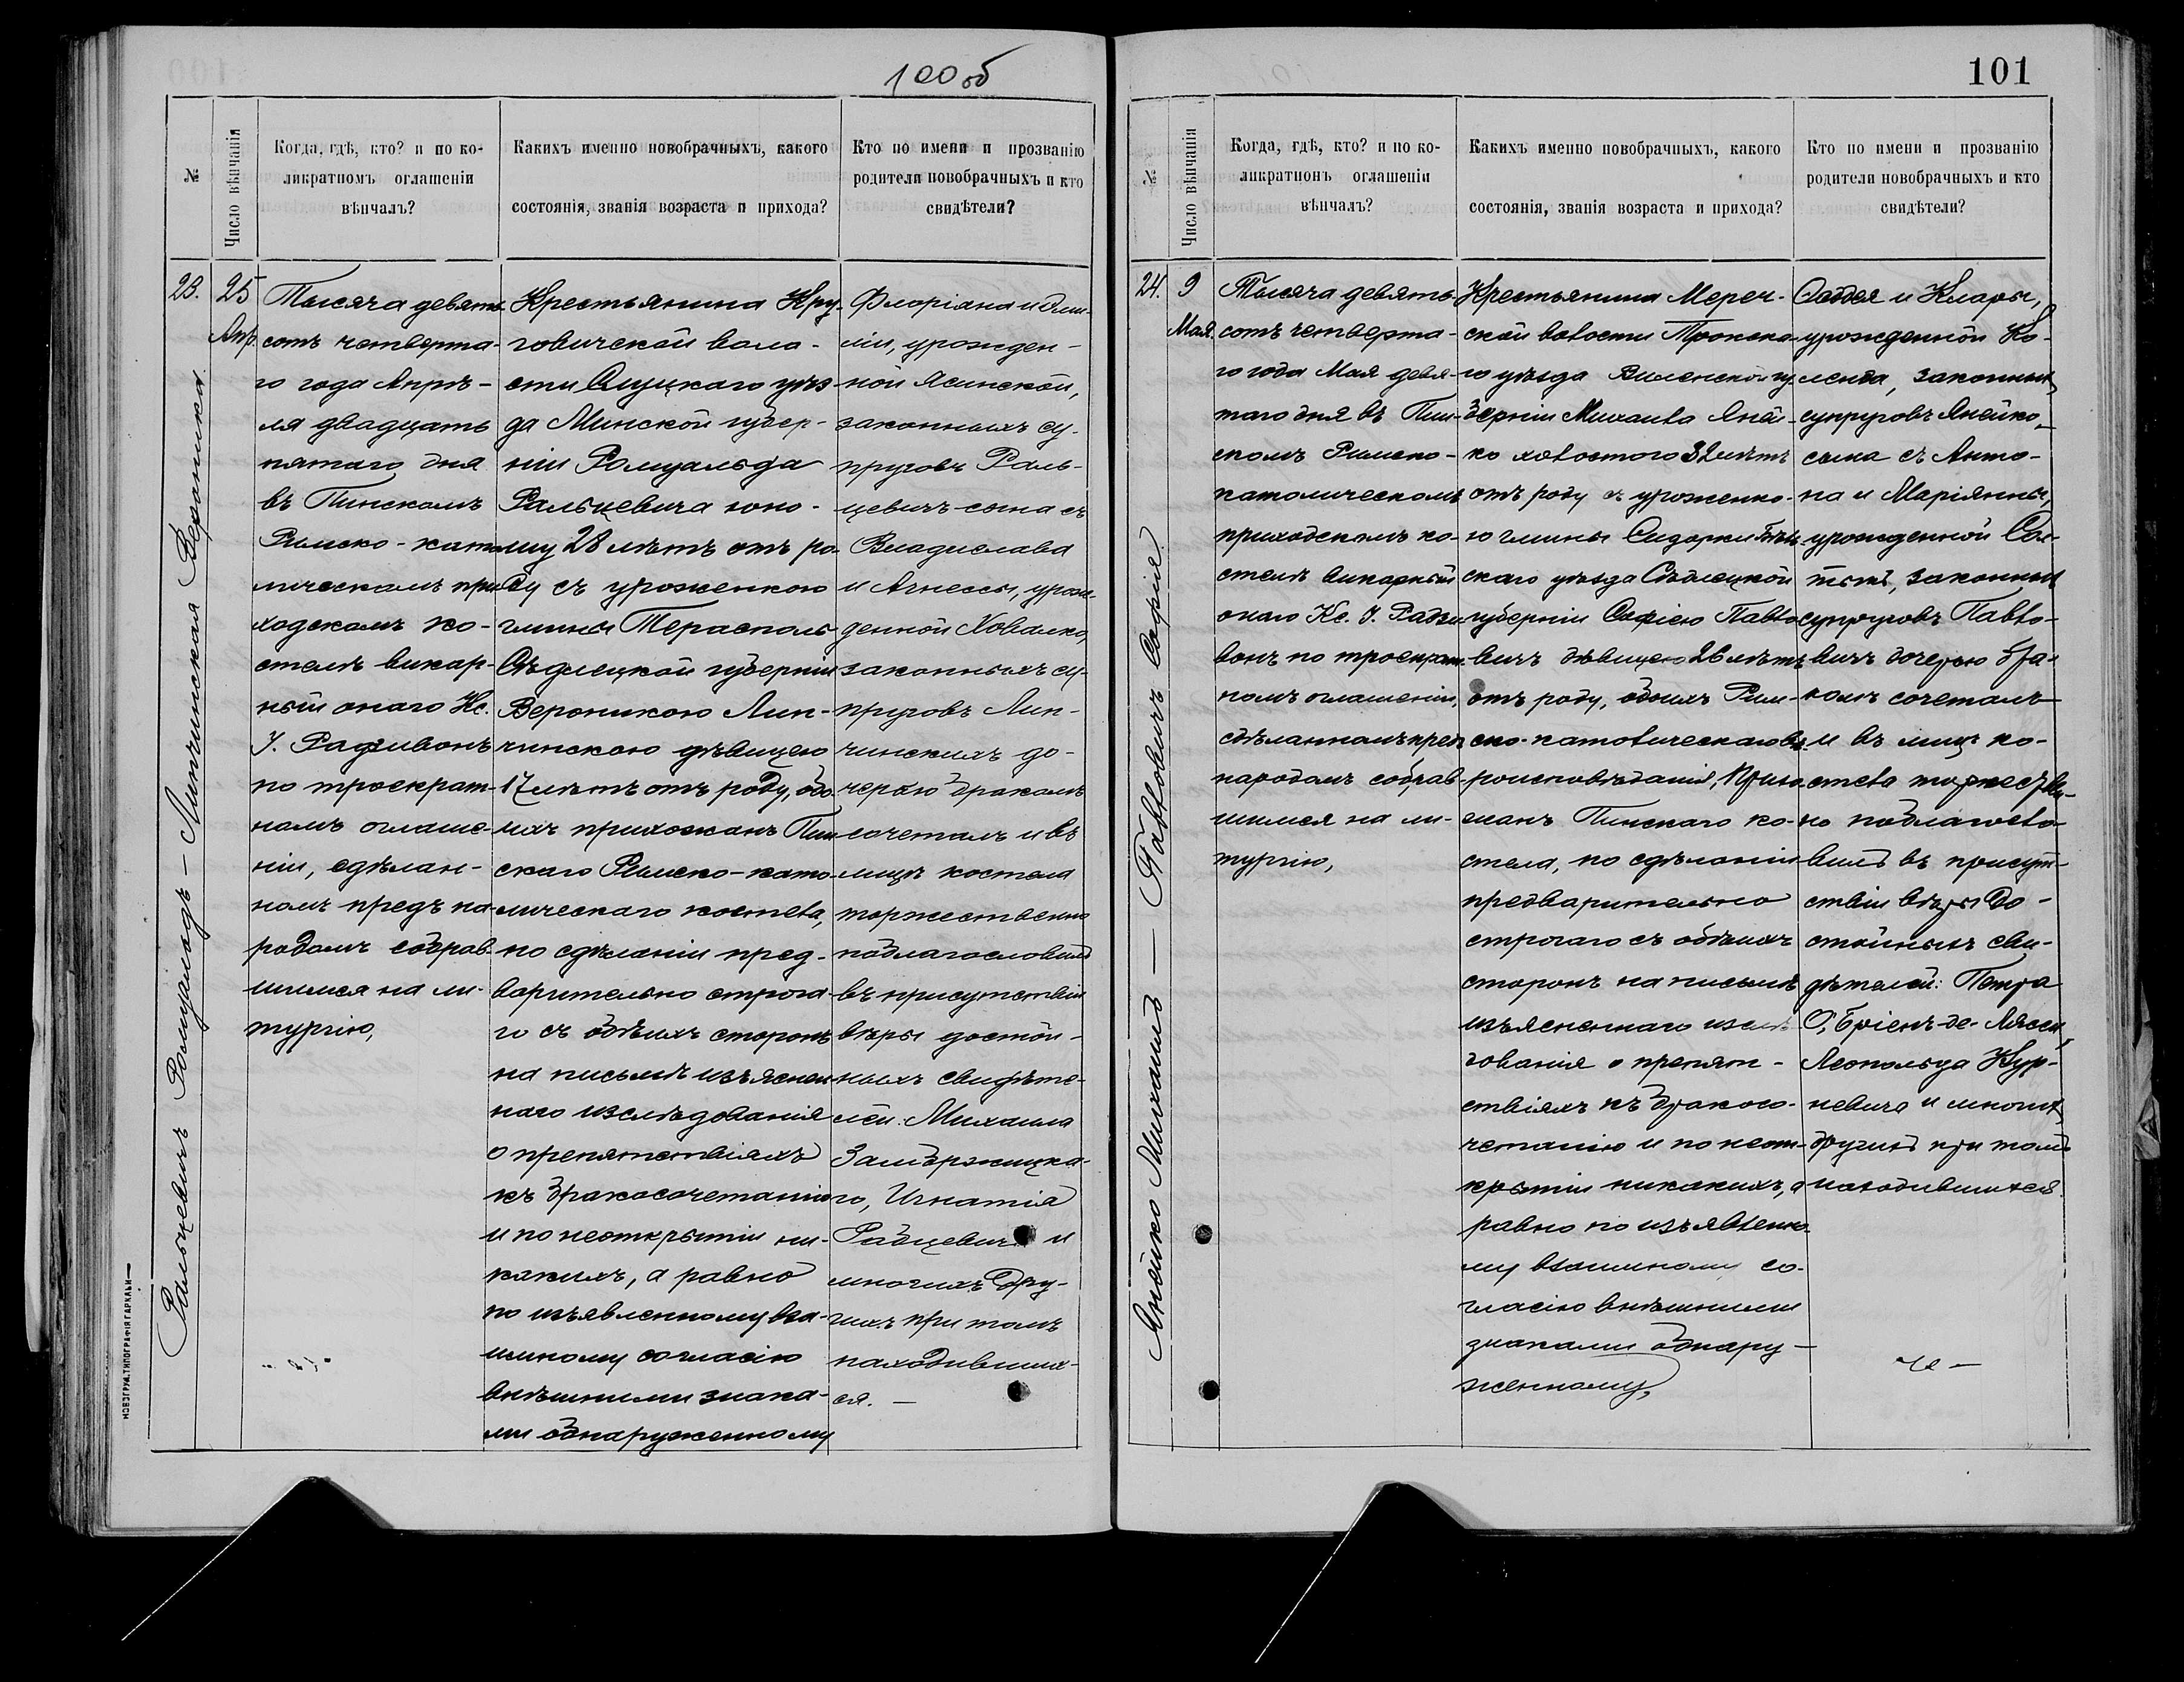 100 об
№
Число вѣнчанія
Когда, гдѣ, кто? и по ко-
ликратномъ оглашеніи
вѣнчалъ?
Какихъ именно новобрачныхъ, какого
состоянія, званія возраста и прихода?
Кто по имени и прозванію
родители новобрачныхъ и кто
свидѣтели?
Ральцевичъ Ромуальдъ – Липчинская Вероника
23.
25
Апр.
Тысяча девять-
сотъ четверта-
го года Апрѣ-
ля двадцать
пятаго дня
въ Пинскомъ
Римско-като-
лическомъ при-
ходскомъ ко-
стелѣ викар-
ный онаго Кс.
І. Радзивонъ
по троекрат-
номъ оглаше-
ніи, сдѣлан-
номъ предъ на-
родомъ собрав-
шимся на ли-
тургію,
Крестьянина Кру-
говичской воло-
сти Слуцкаго уѣз-
да Минской губер-
ніи Ромуальда
Ральцевича юно-
шу 28 лѣтъ отъ ро-
ду съ уроженкою
гмины Тересполь
Сѣдлецкой губерніи
Вероникою Лип-
чинскою дѣвицею
17 лѣтъ отъ роду, обо-
ихъ прихожанъ Пин-
скаго Римско-като-
лическаго костела,
по сдѣланіи пред-
варительно строга-
го съ обѣихъ сторонъ
на письмѣ изъяснен-
наго изслѣдованія
о препятствіяхъ
къ бракосочетанію
и по неоткрытіи ни-
какихъ, а равно
по изъявленному вза-
имному согласію
внѣшними знака-
ми обнаруженному
Флоріана и Эми-
ліи, урожден-
ной Ясинской,
законныхъ су-
пруговъ Раль-
цевичъ сына съ
Владислава
и Агнессы, урож-
денной Ховалко,
законныхъ су-
пруговъ Лип-
чинскихъ до-
черью бракомъ
сочеталъ и въ
лицѣ костела
торжественно
поблагословилъ
въ присутствіи
вѣры достой-
ныхъ свидѣте-
лей: Михаила
Замбржицка-
го, Игнатія
и
многихъ дру-
гихъ при томъ
находивших-
ся. –
НОВОГРУД. ТИПОГРАФІЯ ГАРКАВИ
101
№
Число вѣнчанія
Когда, гдѣ, кто? и по ко-
ликратномъ оглашеніи
вѣнчалъ?
Какихъ именно новобрачныхъ, какого
состоянія, званія возраста и прихода?
Кто по имени и прозванію
родители новобрачныхъ и кто
свидѣтели?
Янейко Михаилъ – Павловичъ Софія
24.
9
Мая.
Тысяча девять-
сотъ четверта-
го года Мая девя-
таго дня въ Пин-
скомъ Римско-
католическомъ
приходскомъ ко-
стелѣ викарный
онаго Кс. І. Радзи-
вонъ по троекрат-
номъ оглашеніи,
сдѣланномъ предъ
народомъ собрав-
шимся на ли-
тургію,
Крестьянина Мереч-
ской волости Трокска-
го уѣзда Виленской гу-
берніи Михаила Яней-
ко холостого 32 лѣтъ
отъ роду съ уроженко-
ю гмины Сидорки Бѣль-
скаго уѣзда Сѣдлецкой
губерніи Софіею Павло-
вичъ дѣвицею 26 лѣтъ
отъ роду, обоихъ Рим-
ско-католическаго вѣ-
роисповѣданія, прихо-
жанъ Пинскаго ко-
стела, по сдѣланіи
предварительно
строгаго съ обѣихъ
сторонъ на письмѣ
изъясненнаго изслѣ-
дованія о препят-
ствіяхъ къ бракосо-
четанію и по неот-
крытіи никакихъ, а
равно по изъявленно-
му взаимному со-
гласію внѣшними
знаками обнару-
женному,
Фаддея и Клары,
урожденной Ко-
ленда, законныхъ
супруговъ Янейко,
сына съ Анто-
на и Маріянны,
урожденной
законныхъ
супруговъ Павло-
вичъ дочерью бра-
комъ сочеталъ
и въ лицѣ ко-
стела торжествен-
но поблагосло-
вилъ въ присут-
ствіи вѣры до-
стойныхъ сви-
дѣтелей: Петра
О'Бріенъ-де-Лясси,
Леопольда Кур-
невича и многихъ
другихъ при томъ
находившихся.